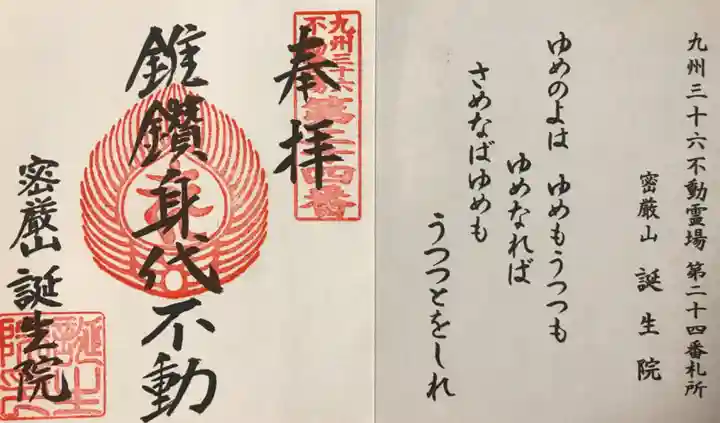 九州三十六不動霊場 第二十四番札所
密厳山 誕生院
ゆめのよは ゆめもうつつも
ゆめなれば
さめなばゆめも
うつつとをしれ
九州三十六
不動霊場
第二十四番
奉拝
錐鑽身代不動
密厳山 誕生院